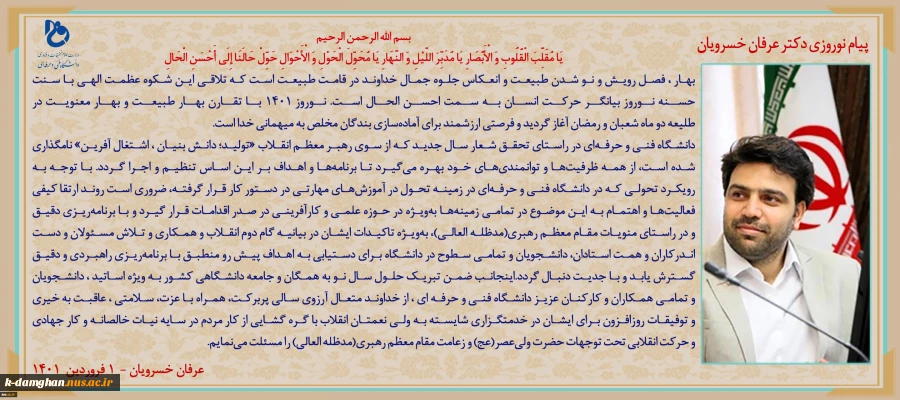 وزارت علوم، تحقیقات و فناوری
دانشگاه فنی و حرفه‌ای
پیام نوروزی دکتر عرفان خسرویان
بسم الله الرحمن الرحیم
یَا مُقَلِّبَ الْقُلُوبِ وَ الْأَبْصَارِ یَا مُدَبِّرَ اللَّیْلِ وَ النَّهَارِ یَا مُحَوِّلَ الْحَوْلِ وَ الْأَحْوَالِ حَوِّلْ حَالَنَا إِلَى أَحْسَنِ الْحَالِ
بهار ، فصل رویش و نو شدن طبیعت و انعکاس جلوه جمال خداوند در قامت طبیعت است که تلاقی این شکوه عظمت الهی با سنت
حسنه نوروز بیانگر حرکت انسان به سمت احسن الحال است. نوروز ۱۴۰۱ با تقارن بهار طبیعت و بهار معنویت در
طلیعه دو ماه شعبان و رمضان آغاز گردید و فرصتی ارزشمند برای آماده‌سازی بندگان مخلص به میهمانی خدا است.
دانشگاه فنی و حرفه‌ای در راستای تحقق شعار سال جدید که از سوی رهبر معظم انقلاب «تولید؛ دانش بنیان ، اشتغال آفرین» نامگذاری
شده است، از همه ظرفیت‌ها و توانمندی‌های خود بهره می‌گیرد تا برنامه‌ها و اهداف بر این اساس تنظیم و اجرا گردد. با توجه به
رویکرد تحولی که در دانشگاه فنی و حرفه‌ای در زمینه تحول در آموزش‌های مهارتی در دستور کار قرار گرفته، ضروری است روند ارتقا کیفی
فعالیت‌ها و اهتمام به این موضوع در تمامی زمینه‌ها به‌ویژه در حوزه علمی و کارآفرینی در صدر اقدامات قرار گیرد و با برنامه‌ریزی دقیق
و در راستای منویات مقام معظم رهبری(مدظله العالی)، به‌ویژه تاکیدات ایشان در بیانیه گام دوم انقلاب و همکاری و تلاش مسئولان و دست
اندرکاران و همت استادان، دانشجویان و تمامی سطوح در دانشگاه برای دستیابی به اهداف پیش رو منطبق با برنامه‌ریزی راهبردی و دقیق
گسترش یابد و با جدیت دنبال گردد.اینجانب ضمن تبریک حلول سال نو به همگان و جامعه دانشگاهی کشور به ویژه اساتید ، دانشجویان
و تمامی همکاران و کارکنان عزیز دانشگاه فنی و حرفه ای ، از خداوند متعال آرزوی سالی پربرکت، همراه با عزت، سلامتی ، عاقبت به خیری
و توفیقات روزافزون برای ایشان در خدمتگزاری شایسته به ولی نعمتان انقلاب با گره گشایی از کار مردم در سایه نیات خالصانه و کار جهادی
و حرکت انقلابی تحت توجهات حضرت ولی‌عصر(عج) و زعامت مقام معظم رهبری(مدظله العالی) را مسئلت می‌نمایم.
عرفان خسرویان - ۱ فروردین ۱۴۰۱
k-damghan.nus.ac.ir